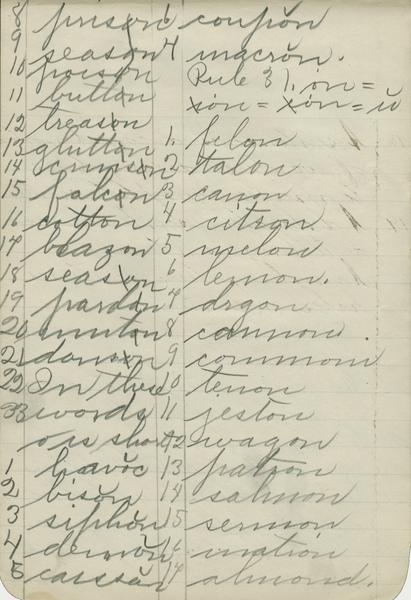 8 prison
9 season
10 poison
11 button
12 treason
13 glutton
14 crimson
15 falcon
16 cotton
17 blazon
18 season
19 pardon
20 mutton
21 damson
22 In these
23 words
o is short
1 havŏc
2 bisŏn
3 siphŏn
4 demŏn
5
6 coupŏn
7 macrŏn.
Rule 3). on =
1. felon
2 talon
3 canon
4 citron
5 melon
6 lemon.
7
8 cannon.
9 common
10 tenon
11
12 wagon
13 patron
14 salmon
15 sermon
16
17 almond.